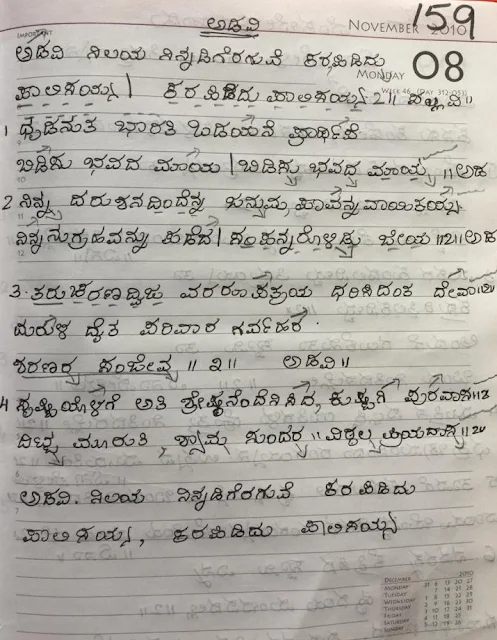 159
ಅಡವಿ
IMPORTANT
NOVEMBER 2010
ಅಡವಿ ನಿಲಯ ನಿನ್ನಡಿಗೆರಗುವೆ ಕರಪಿಡಿದು
MONDAY 08
WEEK 46 (DAY 312-053)
ಪಾಲಿಸಯ್ಯ | ಕರಪಿಡಿದು ಪಾಲಿಸಯ್ಯ 2|| ಪಲ್ಲವಿ||
1 ದೃಢನುತ ಭಾರತಿ ಒಡಯನೆ ಪ್ರಾರ್ಥಿಪೆ
ಬಿಡಿಸು ಭವದ ಮಾಯ | ಬಿಡಿಸು ಭವದ ಮಾಯ ||ಅಡ
2 ನಿನ್ನ ದರುಶನದಿಂದೆನ್ನ ಜನ್ಮ ಪಾವನ್ನವಾಯಿತಯ್ಯ
ನಿನ್ನನುಗ್ರಹವನ್ನು ಪಡೆದ | ದಾಸನ್ನರೊಳ್ಳಿಡು ಜೀಯ ||2||ಅಡ
3. ತರುಚರಣದ್ವಿಜ ವರರೂಪತ್ರಯ ಧರಿಸಿದಂತ ದೇವಾ||2||
ದುರುಳ ದೈತ ಪರಿವಾರ ಗರ್ವಹರ
ಶರಣರ ಸಂಜೀವ || 2 || ಅಡವಿ ||
4 ಸೃಷ್ಟಿಯೊಳಗೆ ಅತಿ ಶ್ರೇಷ್ಠನೆಂದೆನಿಸಿದ, ಕುಷ್ಟಗಿ ಪುರವಾಸ||2
ದಿವ್ಯ ಮೂರುತಿ, ಶ್ಯಾಮ ಸುಂದರ || ವಿಠ್ಠಲ ಪ್ರಿಯದಾಸ ||2||
ಅಡವಿ. ನಿಲಯ ನಿನ್ನಡಿಗೆರಗುವೆ ಕರಪಿಡಿದು
ಪಾಲಿಸಯ್ಯ, ಕರಪಿಡಿದು ಪಾಲಿಸಯ್ಯ
DECEMBER 2010
MONDAY
TUESDAY
WEDNESDAY
THURSDAY
FRIDAY
SATURDAY
SUNDAY